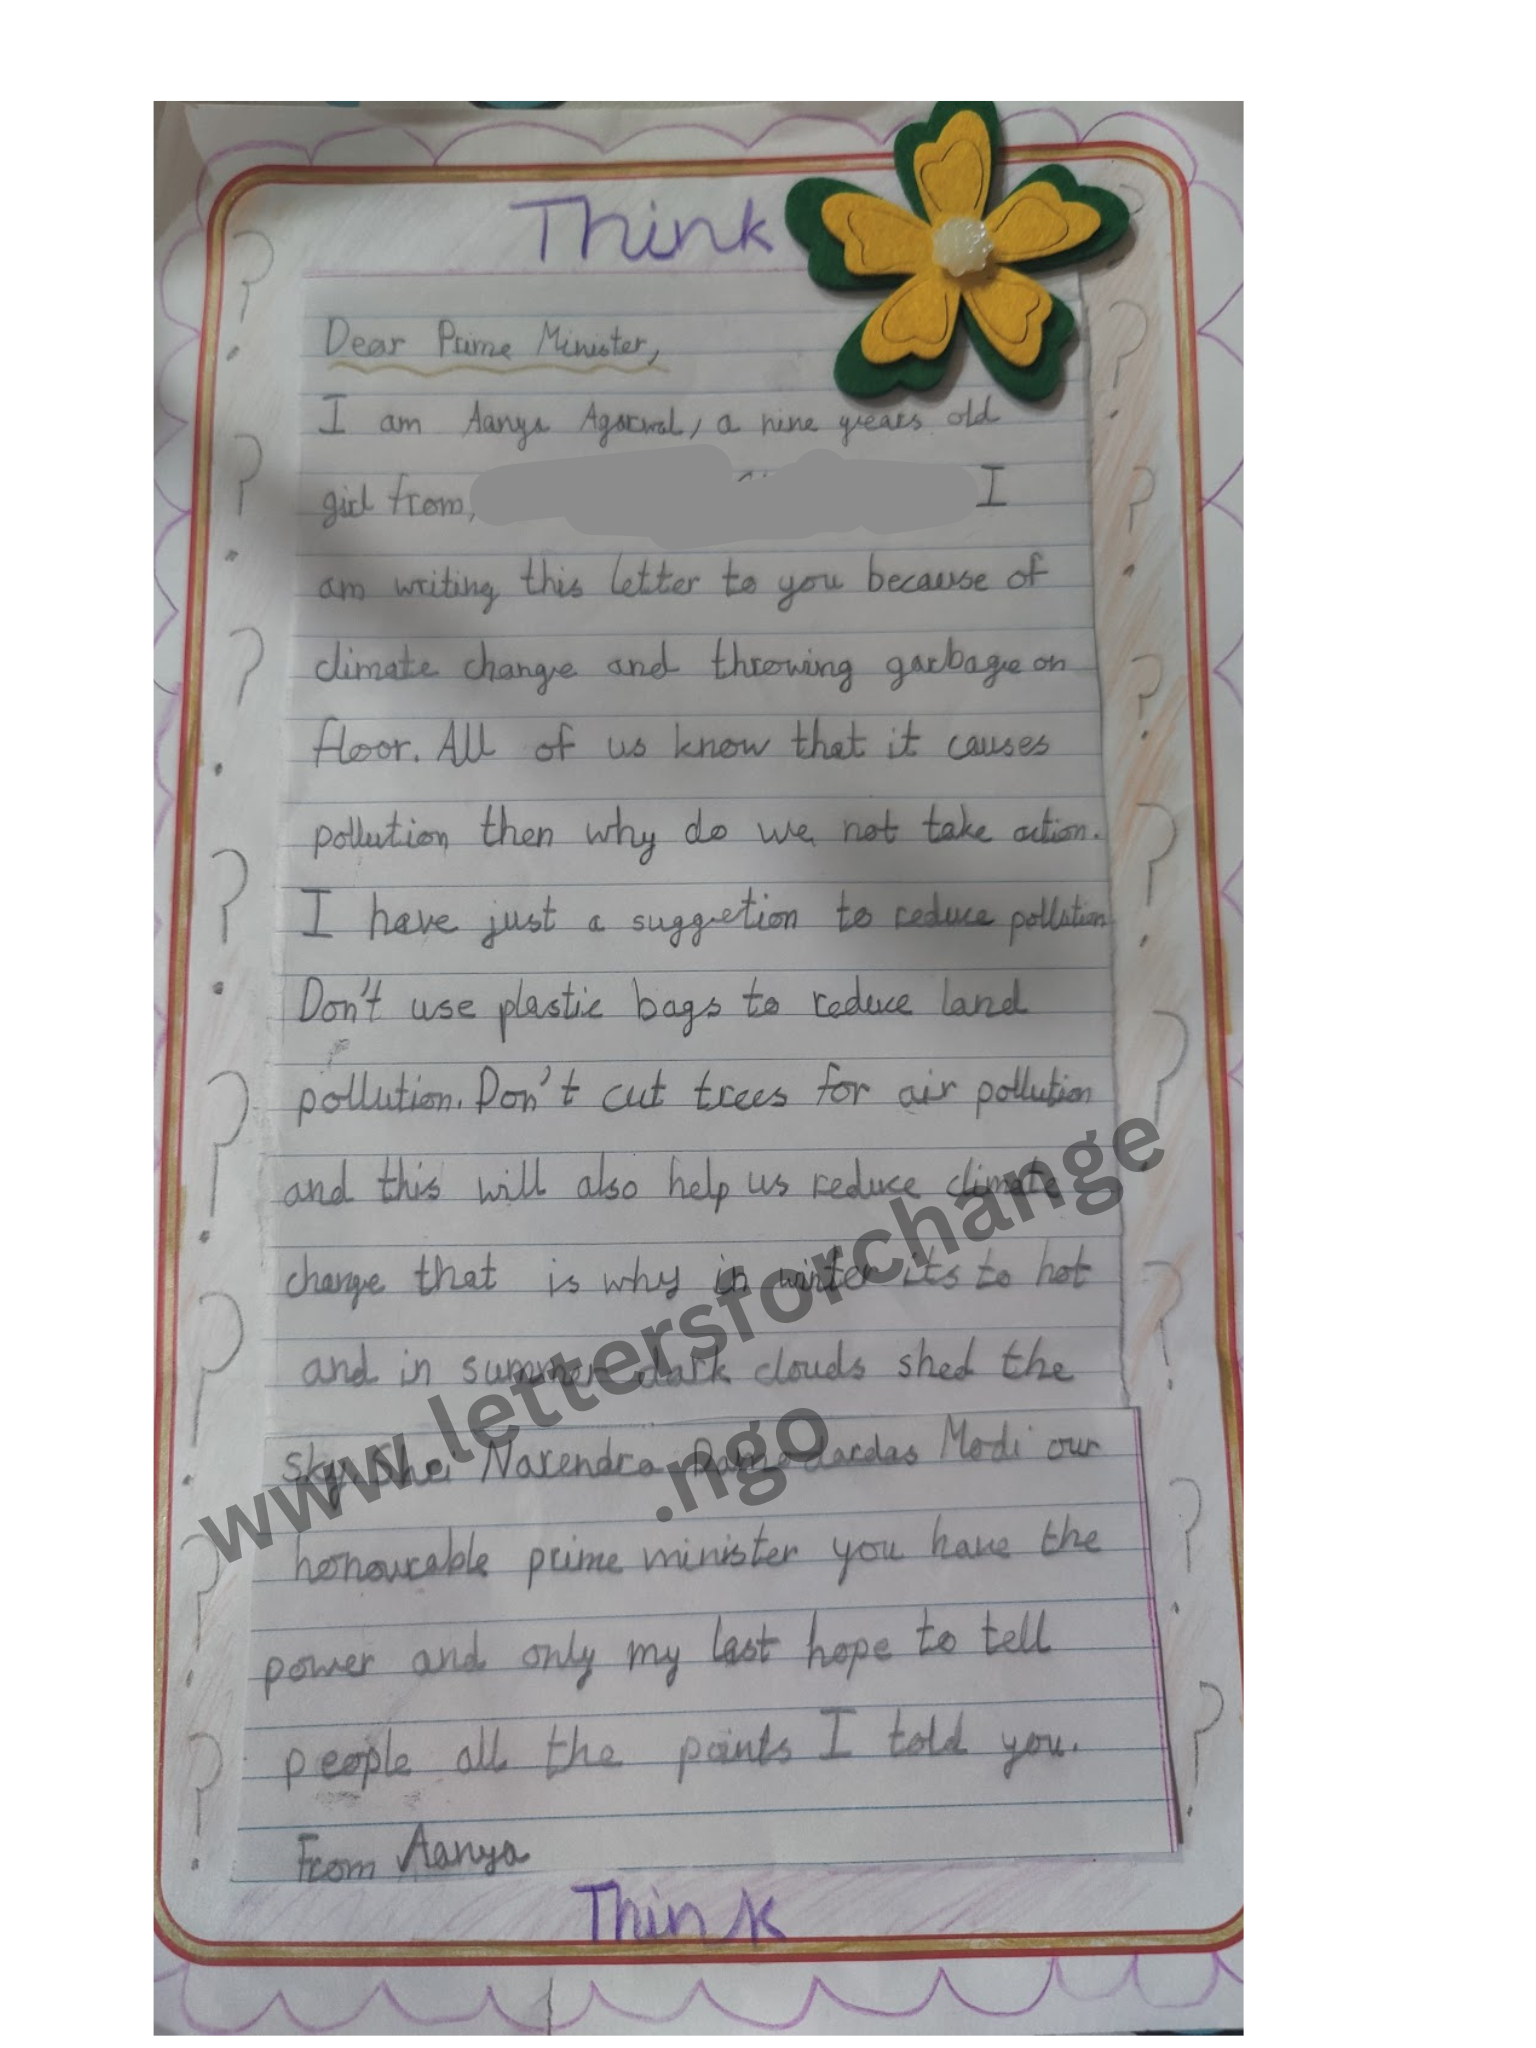 Think
Dear Prime Minister,
I am Aanya Agarwal, a nine years old
girl from, I
am writing this letter to you because of
climate change and throwing garbage on
floor. All of us know that it causes
pollution then why do we not take action.
I have just a suggetion to reduce pollution
Don't use plastic bags to reduce land
pollution. Don't cut trees for air pollution
and this will also help us reduce climate
change that is why in winter its to hot
and in summer dark clouds shed the
sky. Shri Narendra Damodardas Modi our
honourable prime minister you have the
power and only my last hope to tell
people all the points I told you.
From Aanya
Think
www.lettersforchange
.ngo